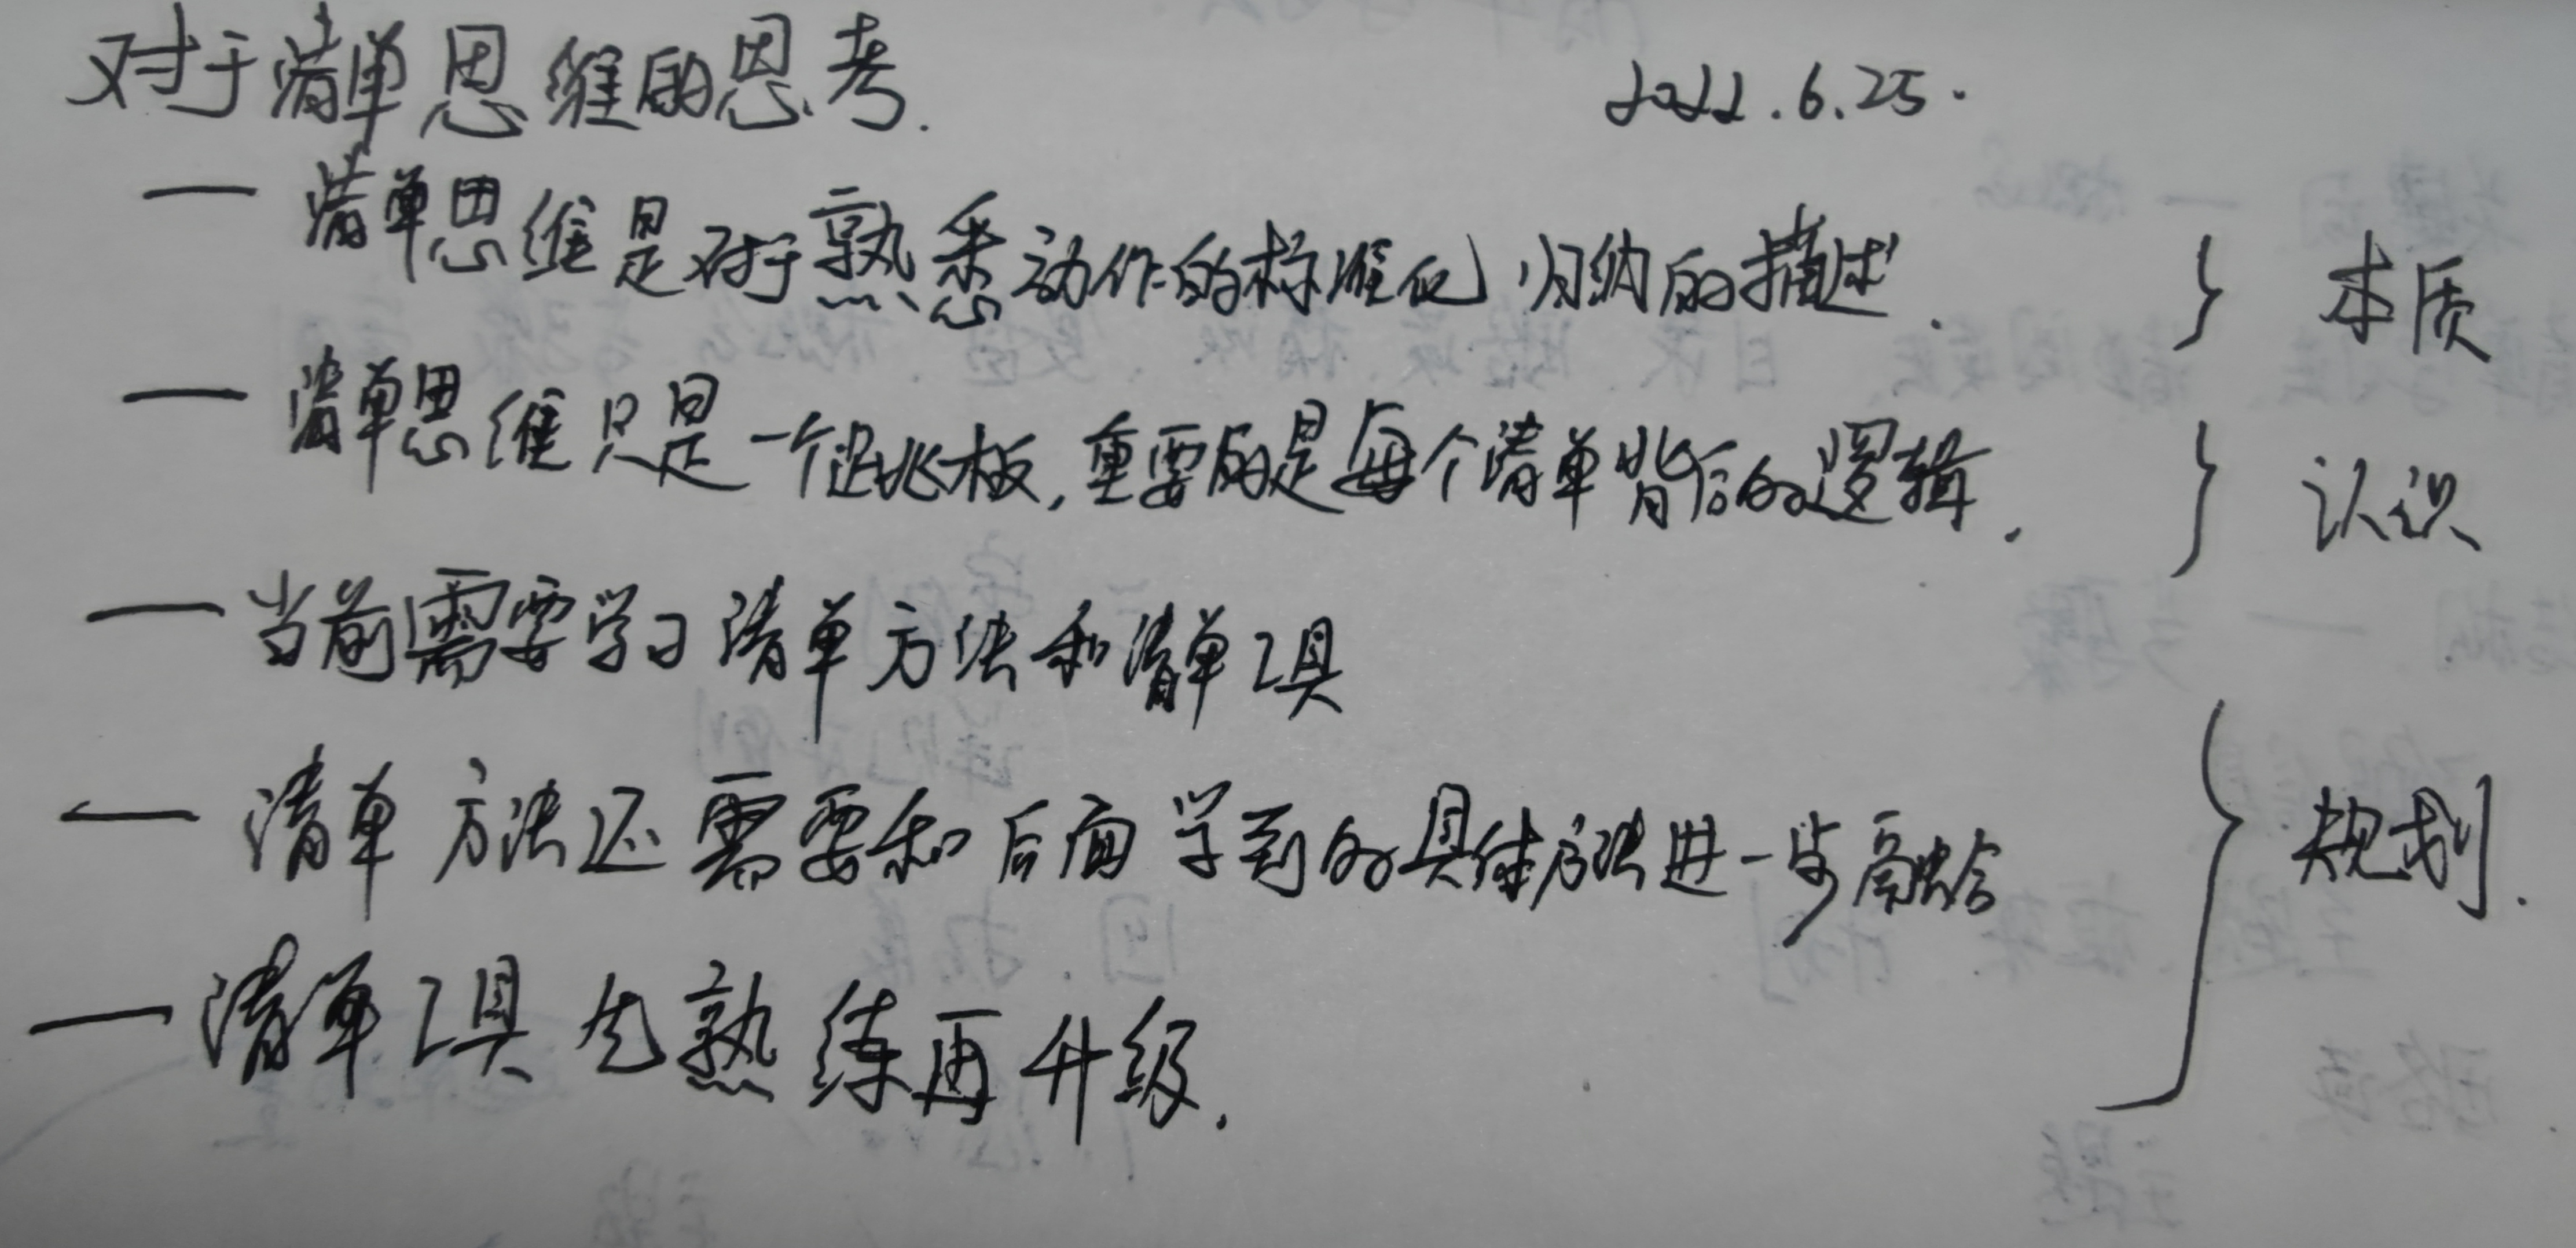 对于清单思维的思考. 2022.6.25.
— 清单思维是对于熟悉动作的标准化归纳的描述. } 本质
— 清单思维只是一个跳板,重要的是每个清单背后的逻辑. } 认识
— 当前需要学习清单方法和清单工具
— 清单方法还需要和后面学到的具体方法进一步融合 } 规划.
— 清单工具先熟练再升级.